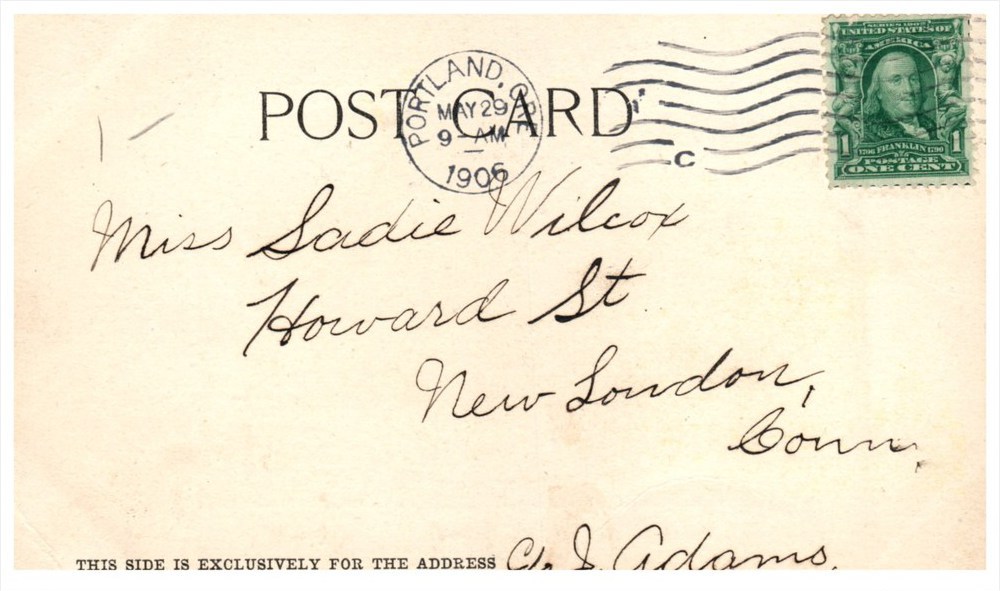 SERIES 1902
UNITED STATES OF
AMERICA
POST CARD
PORTLAND, ORE
MAY 29
9 AM
1906
C
1706 FRANKLIN 1790
1 POSTAGE 1
ONE CENT
Miss Sadie Wilcox
Howard St
New London,
Conn.
THIS SIDE IS EXCLUSIVELY FOR THE ADDRESS
C. J. Adams.